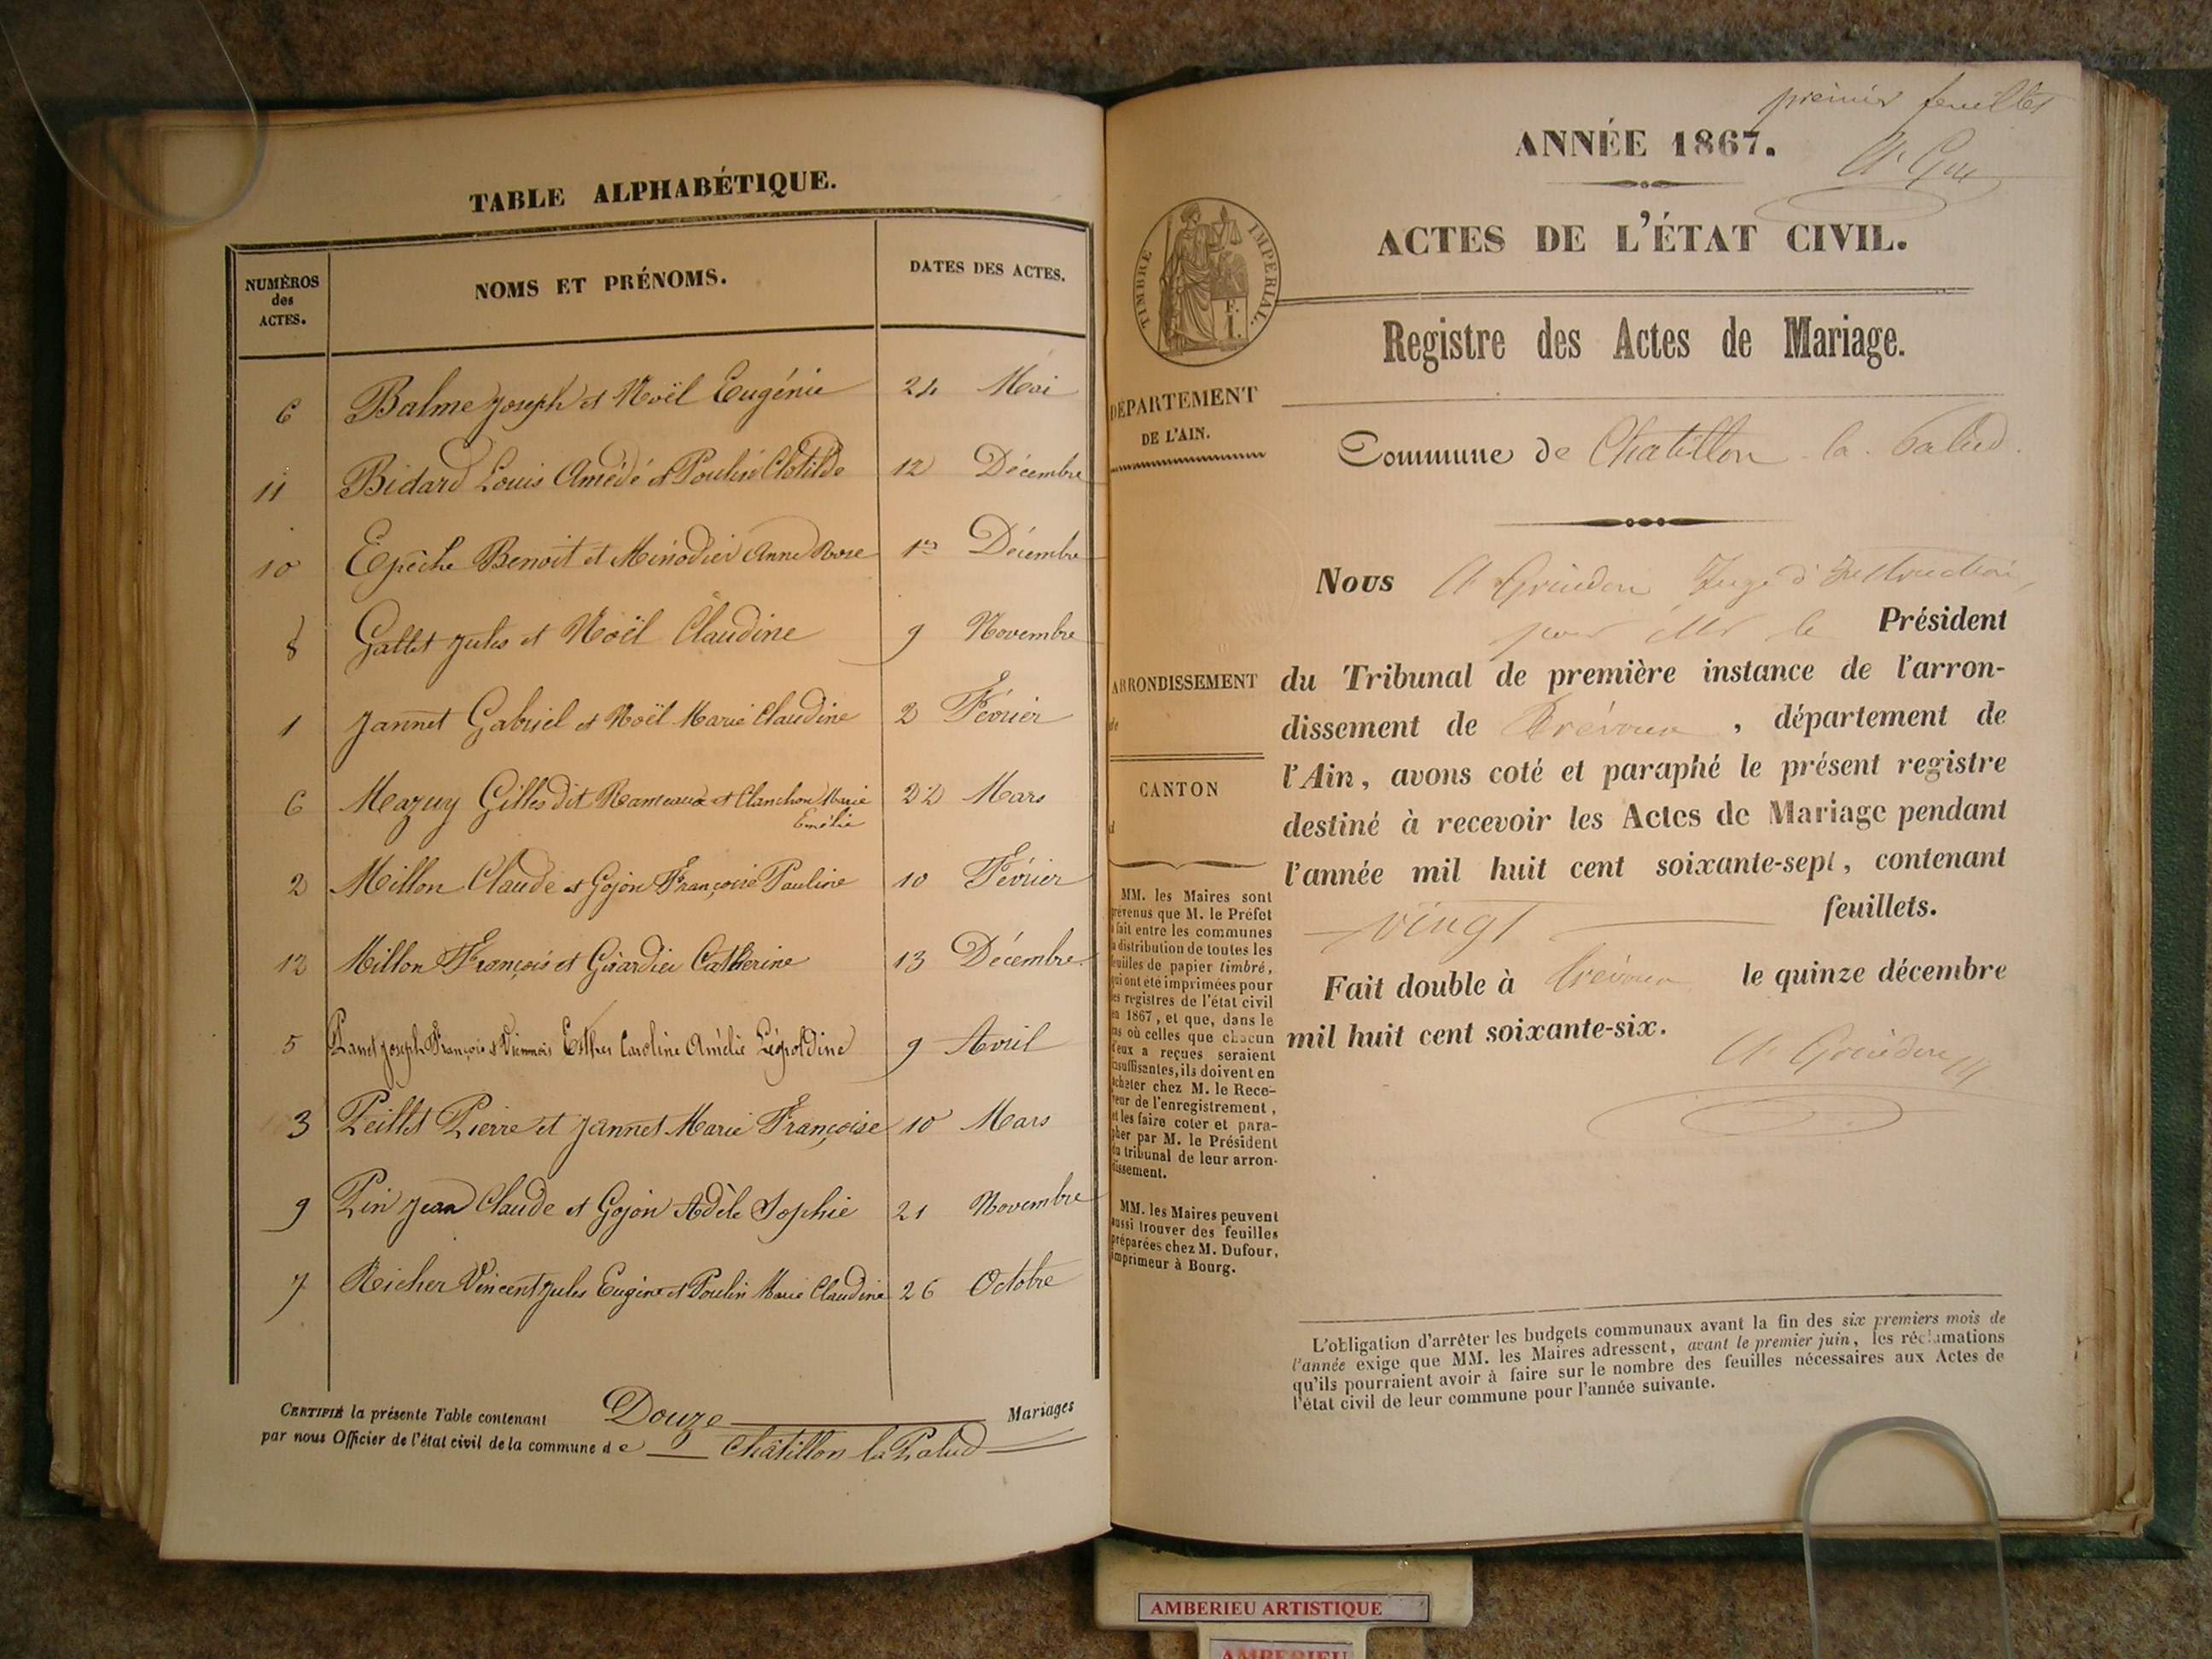 TABLE ALPHABÉTIQUE.
NUMÉROS des ACTES.
NOMS ET PRÉNOMS.
DATES DES ACTES.
6 Balme Joseph et Noël Eugénie 24 Mai
11 Bidard Louis Amédé et Poulin Clotilde 12 Décembre
10 Epêche Benoit et Minodier Anne Rose 1er Décembre
8 Gallet Jules et Noël Claudine 9 Novembre
1 Jannet Gabriel et Noël Marie Claudine 2 Février
6 Mazuy Gilles dit Rameaux et Clanchon Marie 22 Mars
Emélie
2 Millon Claude et Gojon Françoise Pauline 10 Février
12 Millon François et Girardier Catherine 13 Décembre
5 Joseph François et Viennois Esther Caroline Amélie Léopoldine 9 Avril
3 Peillet Pierre et Jannet Marie Françoise 10 Mars
9 Pin Jean Claude et Gojon Adèle Sophie 21 Novembre
7 Richer Vincent Jules Eugène et Poulin Marie Claudine 26 Octobre
CERTIFIÉ la présente Table contenant Douze Mariages
par nous Officier de l'état civil de la commune de Châtillon la Palud
premier feuillet
ANNÉE 1867.
ACTES DE L'ÉTAT CIVIL.
TIMBRE IMPÉRIAL.
Registre des Actes de Mariage.
DÉPARTEMENT
DE L'AIN.
Commune de Chatillon la Palud.
Nous Juge d'Instruction,
pour Mr le Président
ARRONDISSEMENT
de
du Tribunal de première instance de l'arron-
dissement de Trévoux, département de
l'Ain, avons coté et paraphé le présent registre
destiné à recevoir les Actes de Mariage pendant
l'année mil huit cent soixante-sept, contenant
vingt feuillets.
Fait double à Trévoux le quinze décembre
mil huit cent soixante-six.
CANTON
d
MM. les Maires sont
prévenus que M. le Préfet
a fait entre les communes
la distribution de toutes les
feuilles de papier timbré,
qui ont été imprimées pour
les registres de l'état civil
en 1867, et que, dans le
cas où celles que chacun
d'eux a reçues seraient
insuffisantes, ils doivent en
acheter chez M. le Rece-
veur de l'enregistrement,
et les faire coter et para-
pher par M. le Président
du tribunal de leur arron-
dissement.
MM. les Maires peuvent
aussi trouver des feuilles
préparées chez M. Dufour,
imprimeur à Bourg.
L'obligation d'arrêter les budgets communaux avant la fin des six premiers mois de
l'année exige que MM. les Maires adressent, avant le premier juin, les réclamations
qu'ils pourraient avoir à faire sur le nombre des feuilles nécessaires aux Actes de
l'état civil de leur commune pour l'année suivante.
AMBERIEU ARTISTIQUE
AMBERIEU